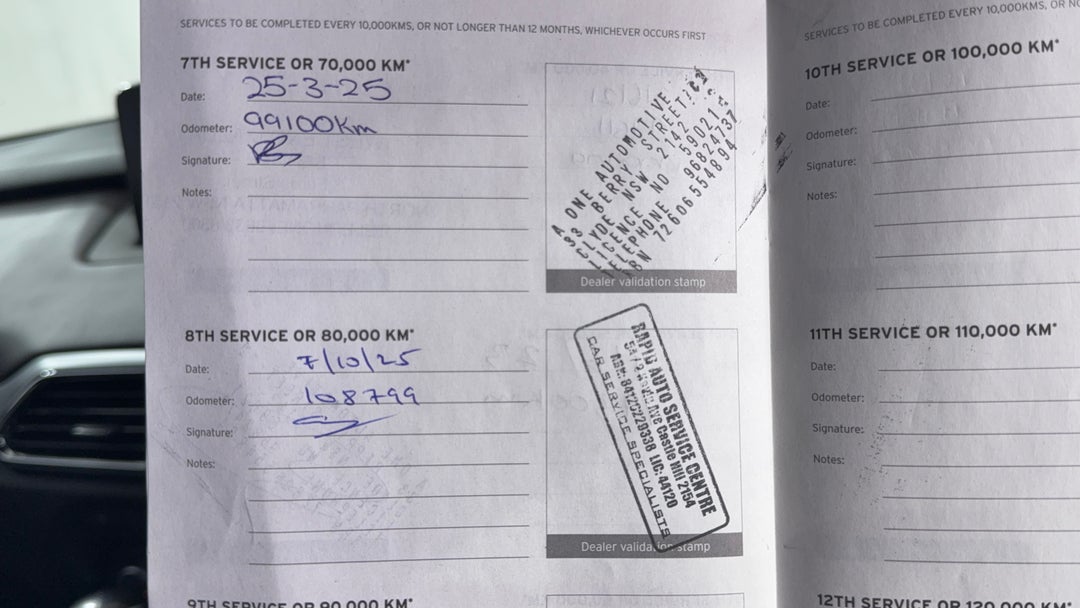 SERVICES TO BE COMPLETED EVERY 10,000KMS, OR NOT LONGER THAN 12 MONTHS, WHICHEVER OCCURS FIRST
7TH SERVICE OR 70,000 KM*
Date: 25-3-25
Odometer: 99100Km
Signature:
Notes:
A ONE AUTOMOTIVE
33 BERRY STREET
CLYDE NSW 2142
LICENCE NO 59021
TELEPHONE 96824737
ABN 72606554894
Dealer validation stamp
8TH SERVICE OR 80,000 KM*
Date: 7/10/25
Odometer: 108799
Signature:
Notes:
RAPID AUTO SERVICE CENTRE
Ave Castle Hill 2154
LIC: 44120
CAR SERVICE SPECIALISTS
Dealer validation stamp
9TH SERVICE OR 90,000 KM*
SERVICES TO BE COMPLETED EVERY 10,000KMS, OR
10TH SERVICE OR 100,000 KM*
Date:
Odometer:
Signature:
Notes:
11TH SERVICE OR 110,000 KM*
Date:
Odometer:
Signature:
Notes:
12TH SERVICE OR 120,000 KM*